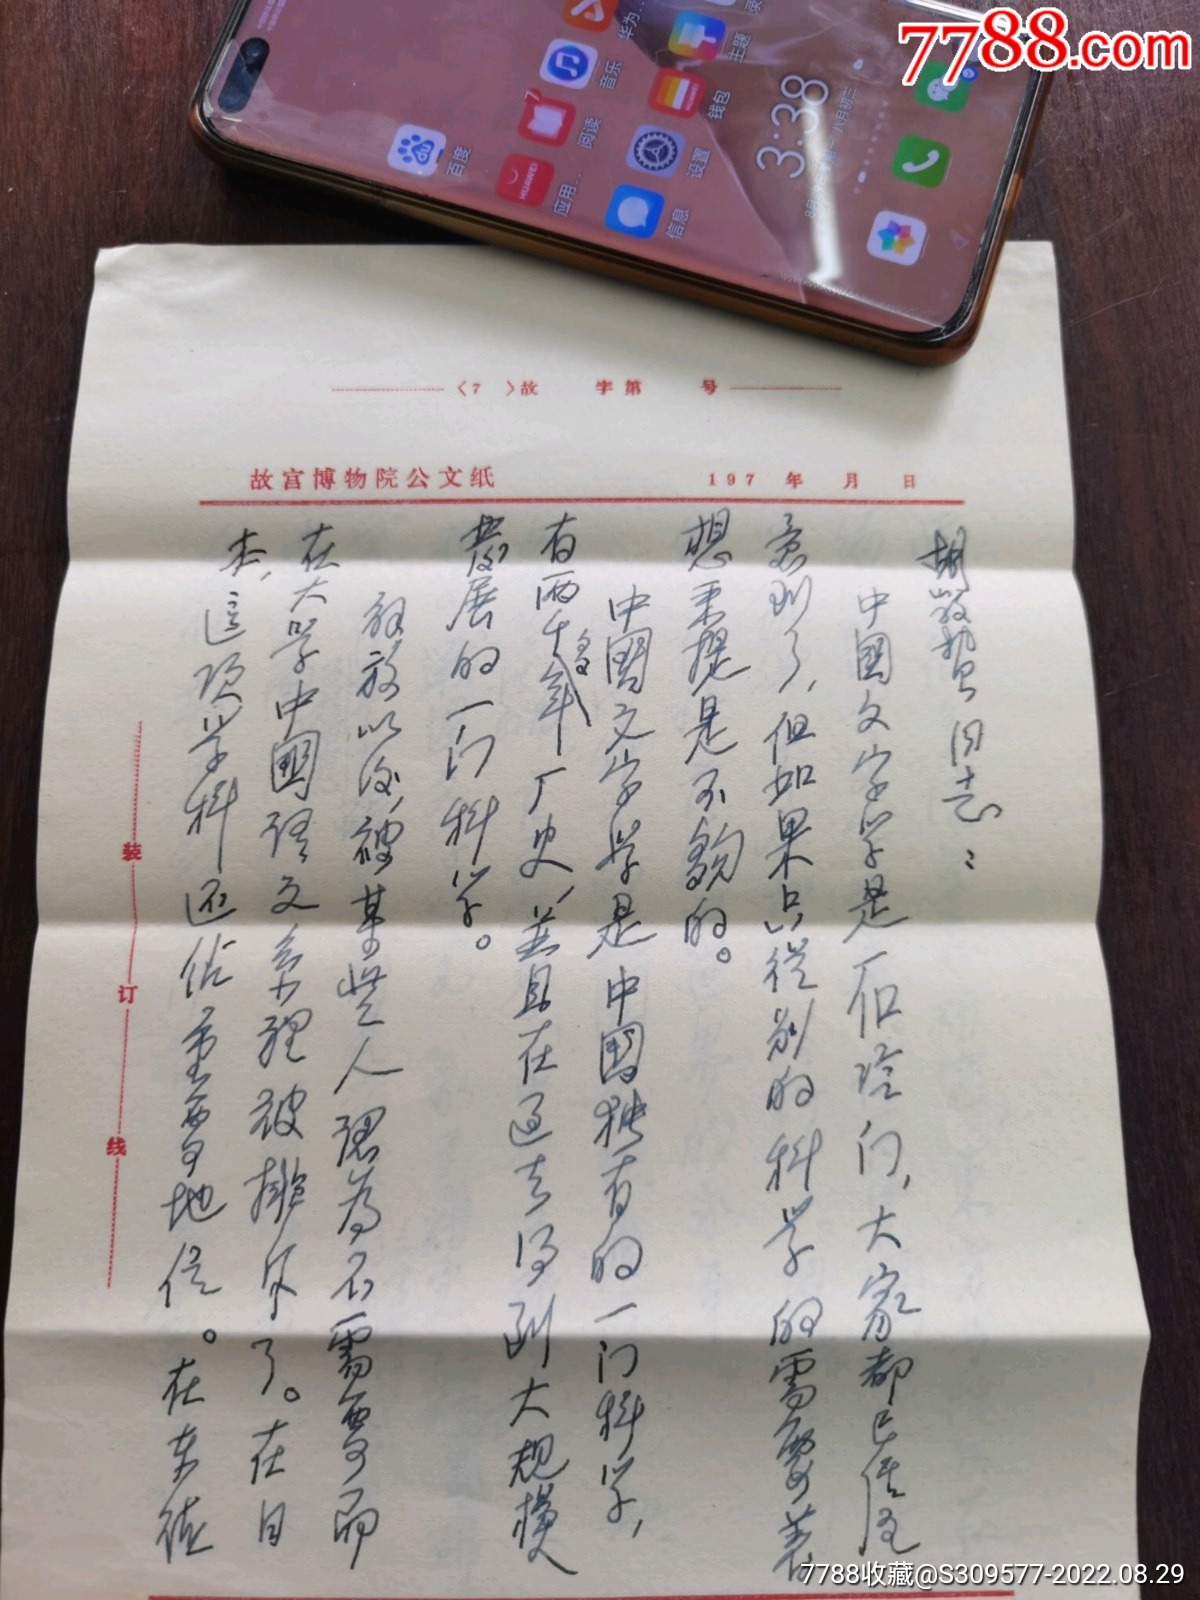 7788.com
华为
主题
音乐
钱包
3:38
阅读
设置
百度
HUAWEI
应用...
信息
〈7 〉故 字第 号
故宫博物院公文纸 197 年 月 日
胡 同志：
中國文字学是一个 门，大家都已
到了，但如果只從别的科学的需要着
想来提是不夠的。
中國文字学是中国独有的一门科学，
有两千多年厂史，并且在过去得到大规模
發展的一门科学。
解放以後，被某些人認為不需要而
在大学中國語文系裡被排斥了。在日
本，這项学科还佔重要地位。在东德
装
订
线
7788收藏@S309577-2022.08.29